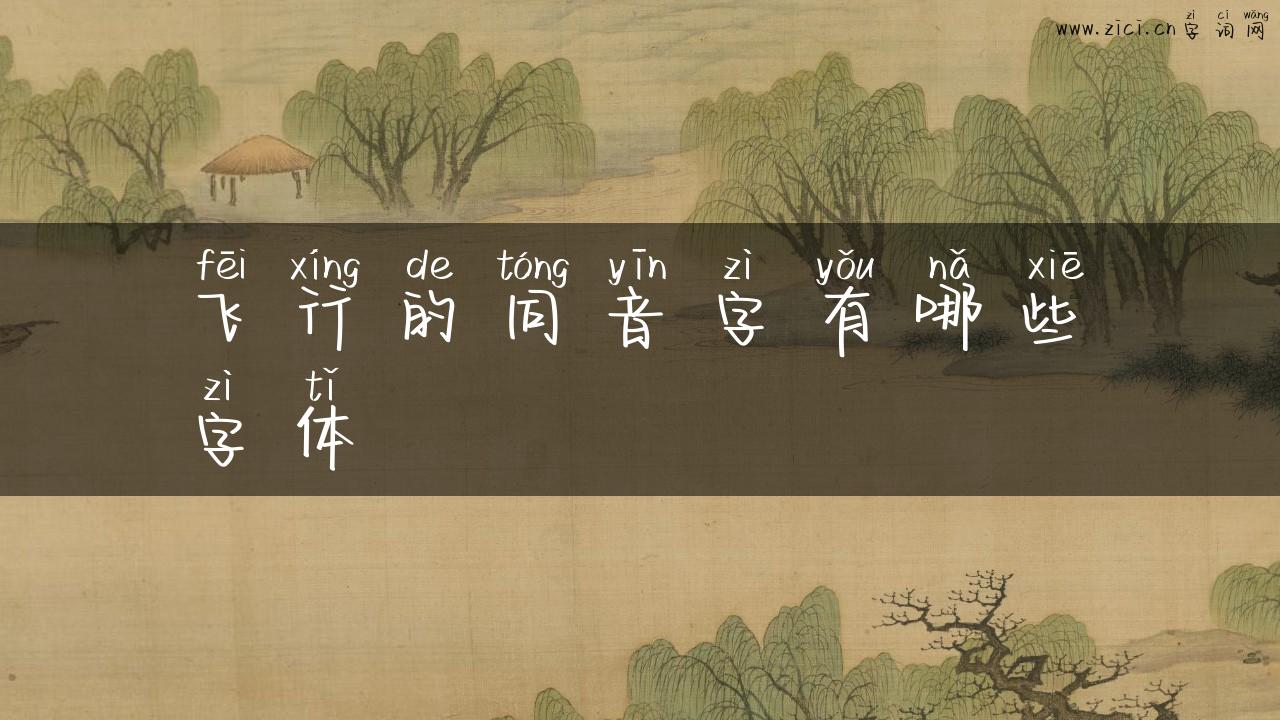 zì cí wǎng
www.zici.cn 字词网
fēi xíng de tóng yīn zì yǒu nǎ xiē
飞行的同音字有哪些
zì tǐ
字体